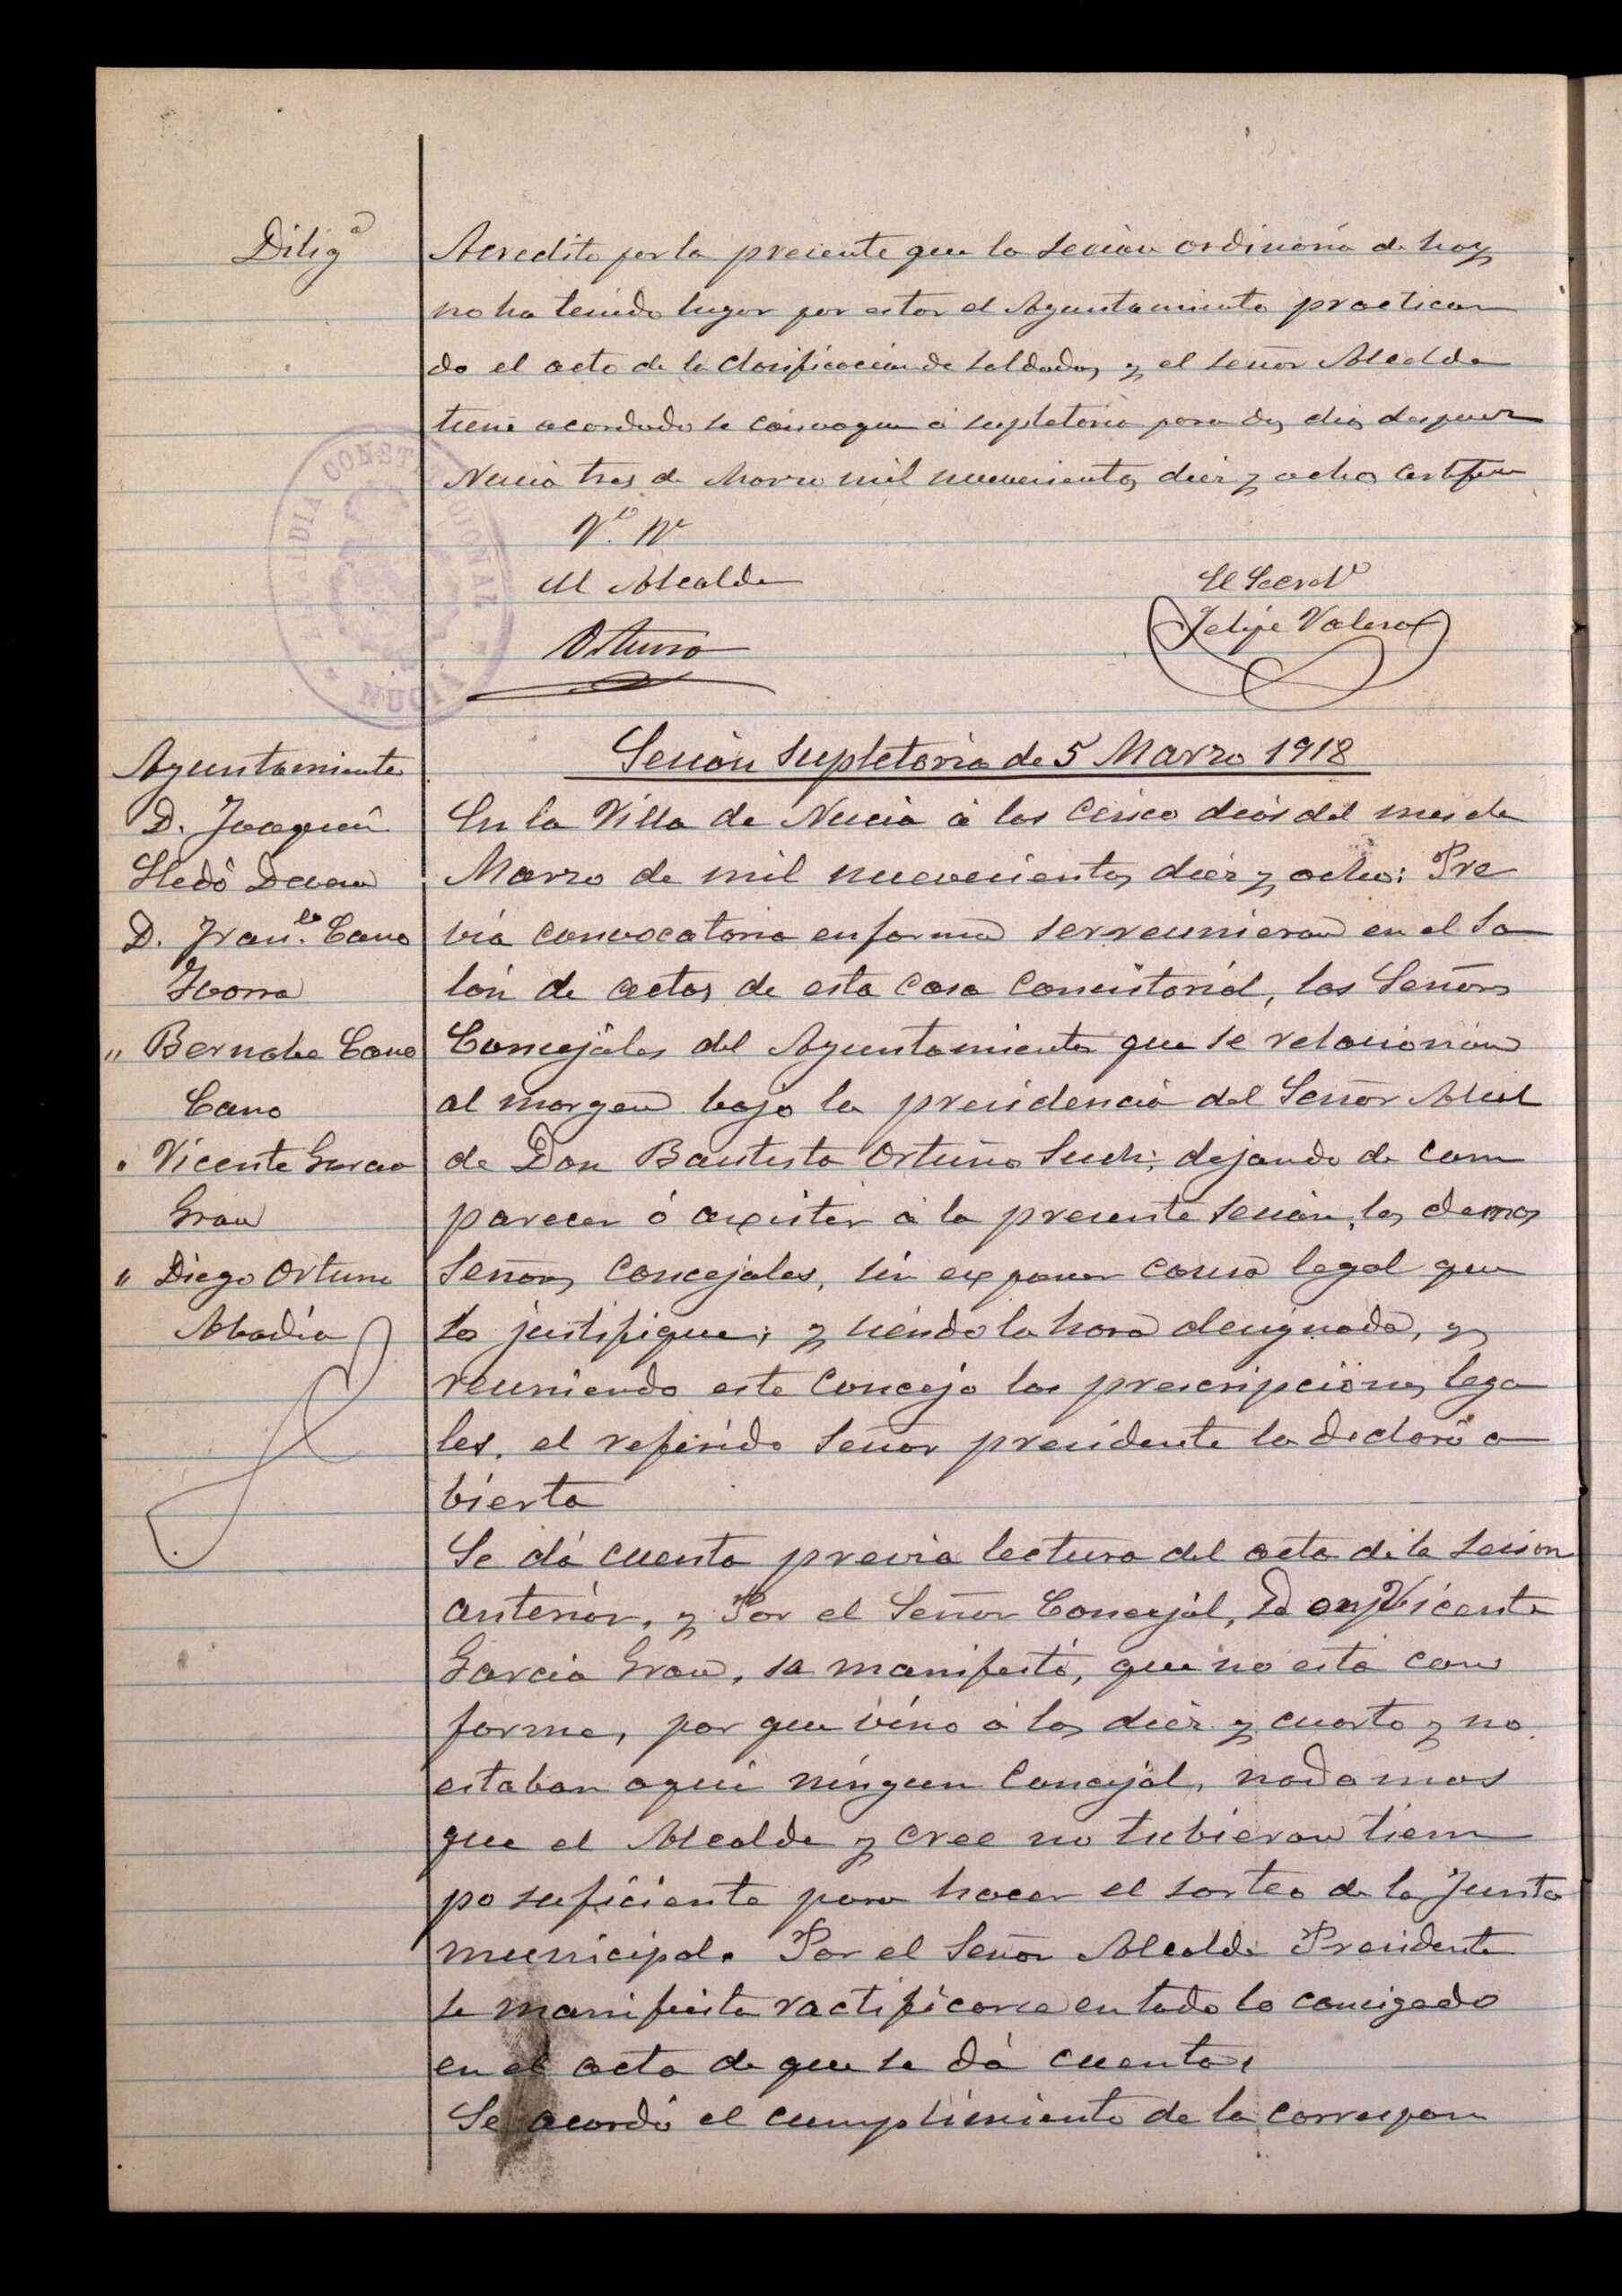 Dilig.ª
Acredito por la presente que la sesion ordinaria de hoy
no ha tenido lugar por estar el Ayuntamiento practican
do el acto de la clasificacion de soldados, y el señor Alcalde
tiene acordado se convoque á supletoria para dos dias despues
Nucia tres de Marzo mil novecientos diez y ocho, certifico
Vº Bº
El Alcalde
Ortuño
El Secretº
Felipe Valero
ALCALDIA CONSTITUCIONAL
NUCIA
Ayuntamiento
D. Joaquin
Lledó
D. Fran.co Cano
Iborra
" Bernabe Cano
Cano
" Vicente Garcia
Grau
" Diego Ortuño
Abadia
Sesión Supletoria de 5 Marzo 1918
En la Villa de Nucia á los cinco dias del mes de
Marzo de mil nuevecientos diez y ocho: Pre
via convocatoria en forma se rreunieron en el Sa
lón de actos de esta Casa Consistorial, los Señores
Concejales del Ayuntamiento que se relacionan
al margen bajo la presidencia del Señor Alcal
de Don Bautista Ortuño Such; dejando de com
parecer ó asistir á la presente sesion, los demas
Señores Concejales, sin exponer causa legal que
lo justifique; y siendo la hora designada, y
reuniendo este Concejo las prescripciones lega
les, el referido Señor presidente la declaró a
bierta
Se dá cuenta previa lectura del acta de la sesion
anterior, y Por el Señor Concejal, Don Vicente
Garcia Grau, se manifestó, que no está con
forme, por que vino á las diez y cuarto y no
estaban aqui ningun Concejal, nada mas
que el Alcalde y cree no tubieron tiem
po suficiente para hacer el sorteo de la Junta
municipal. Por el Señor Alcalde Presidente
se manifiesta ractificarse en todo lo consigado
en el acta de que se dá cuenta.
Se acordó el cumplimiento de la correspon